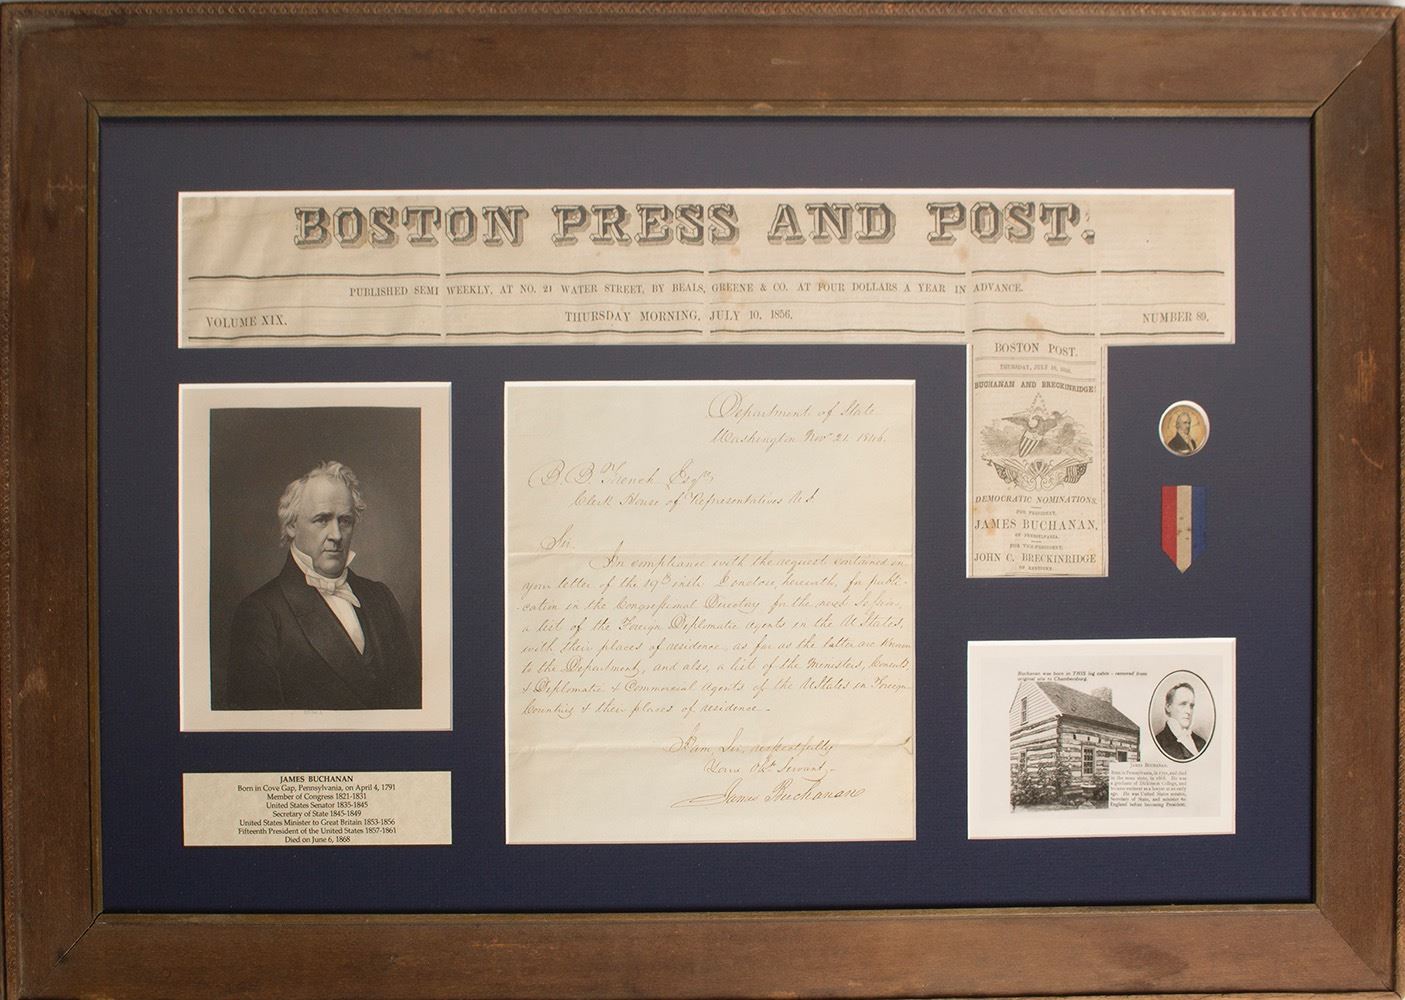 BOSTON PRESS AND POST.
PUBLISHED SEMI WEEKLY, AT NO. 21 WATER STREET, BY BEALS, GREENE & CO. AT FOUR DOLLARS A YEAR IN ADVANCE.
VOLUME XIX.
THURSDAY MORNING, JULY 10, 1856.
NUMBER 89.
BOSTON POST.
THURSDAY, JULY 10, 1856.
BUCHANAN AND BRECKINRIDGE!
DEMOCRATIC NOMINATIONS.
FOR PRESIDENT,
JAMES BUCHANAN,
OF PENNSYLVANIA.
FOR VICE-PRESIDENT,
JOHN C. BRECKINRIDGE
OF KENTUCKY.
Department of State
Washington Nov. 21. 1846.
B. B. French Esqr.
Clerk House of Representatives U. S.
Sir.
In compliance with the request contained in
your letter of the 19th inst. I enclose, herewith, for publi-
cation in the Congressional Directory for the next Session,
a list of the Foreign Diplomatic Agents in the U. States,
with their places of residence, as far as the latter are known
to the Department, and also, a list of the Ministers, Consuls
& Diplomatic & Commercial Agents of the U. States in Foreign
Countries & their places of residence.
I am, Sir, respectfully
Your Obt. Servant,
James Buchanan
JAMES BUCHANAN
Born in Cove Gap, Pennsylvania, on April 4, 1791
Member of Congress 1821-1831
United States Senator 1835-1845
Secretary of State 1845-1849
United States Minister to Great Britain 1853-1856
Fifteenth President of the United States 1857-1861
Died on June 6, 1868
Buchanan was born in THIS log cabin - removed from
original site to Chambersburg.
JAMES BUCHANAN.
Born in Pennsylvania, in 1791, and died
in the same state, in 1868. He was
a graduate of Dickinson College, and
became eminent as a lawyer at an early
age. He was United States senator,
Secretary of State, and minister to
England before becoming President.